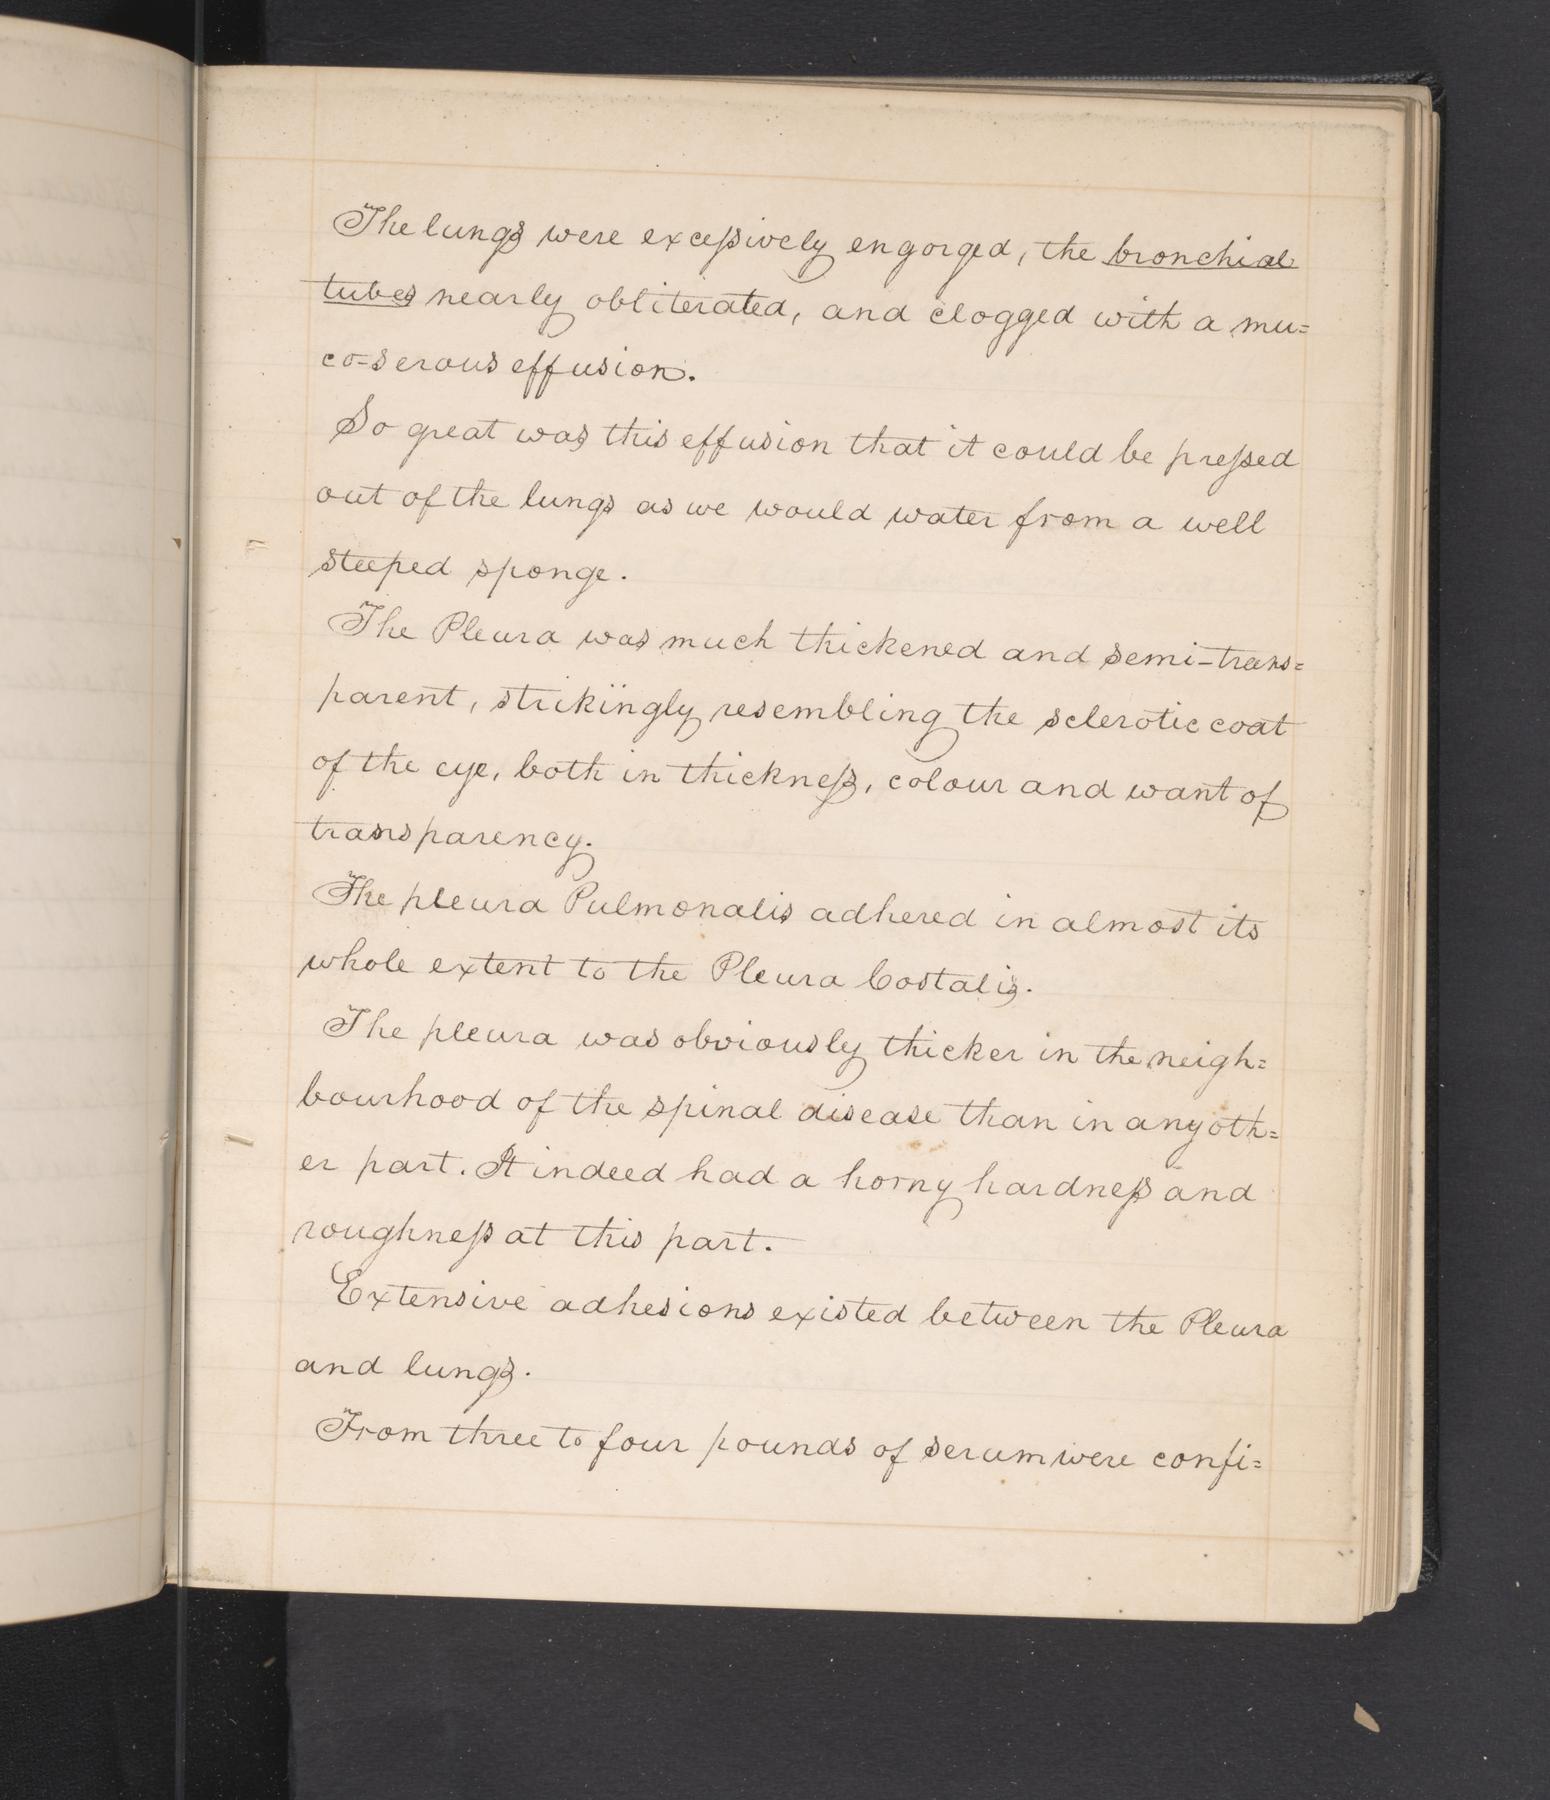 The lungs were exceſsively engorged, the bronchial
tubes nearly obliterated, and clogged with a mu=
co-serous effusion.
So great was this effusion that it could be preſsed
out of the lungs as we would water from a well
steeped sponge.
The Pleura was much thickened and semi-trans=
parent, strikingly resembling the sclerotic coat
of the eye, both in thickneſs, colour and want of
transparency.
The pleura Pulmonalis adhered in almost its
whole extent to the Pleura Costalis.
The pleura was obviously thicker in the neigh=
bourhood of the spinal disease than in any oth=
er part. It indeed had a horny hardneſs and
roughneſs at this part.
Extensive adhesions existed between the Pleura
and lungs.
From three to four pounds of serum were confi=